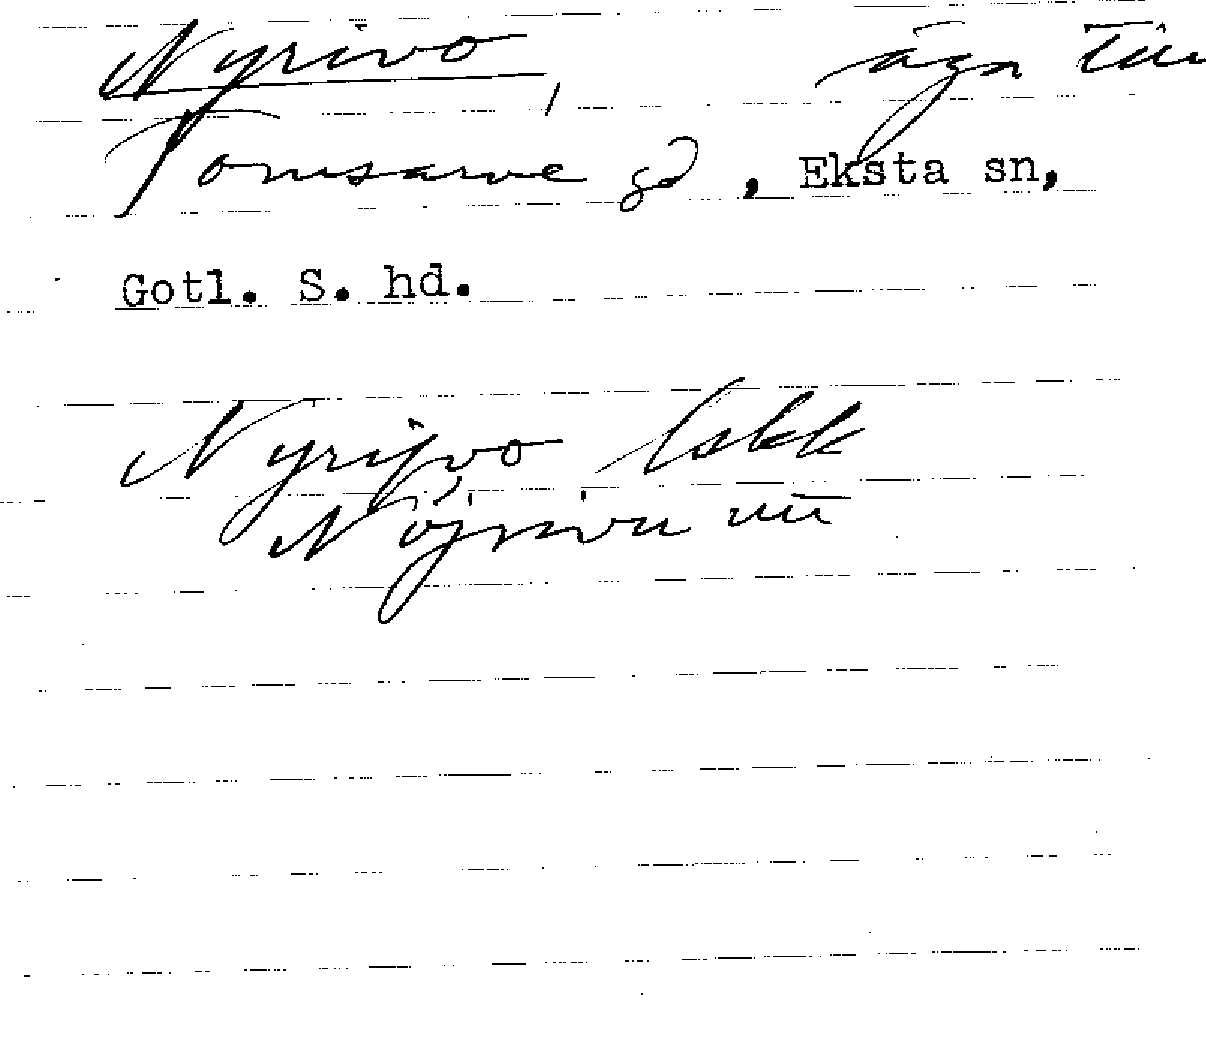 Nyrivo, äga till
Tomsarve gd, Eksta sn,
Gotl. S. hd.
Nyrijvo lskk
Nöjrivu utt